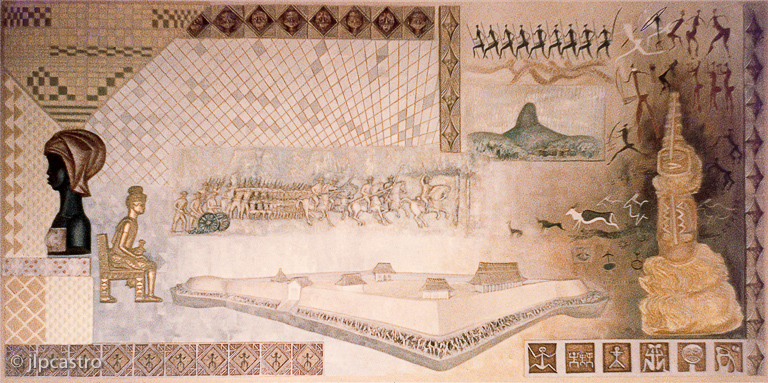 © jlpcastro